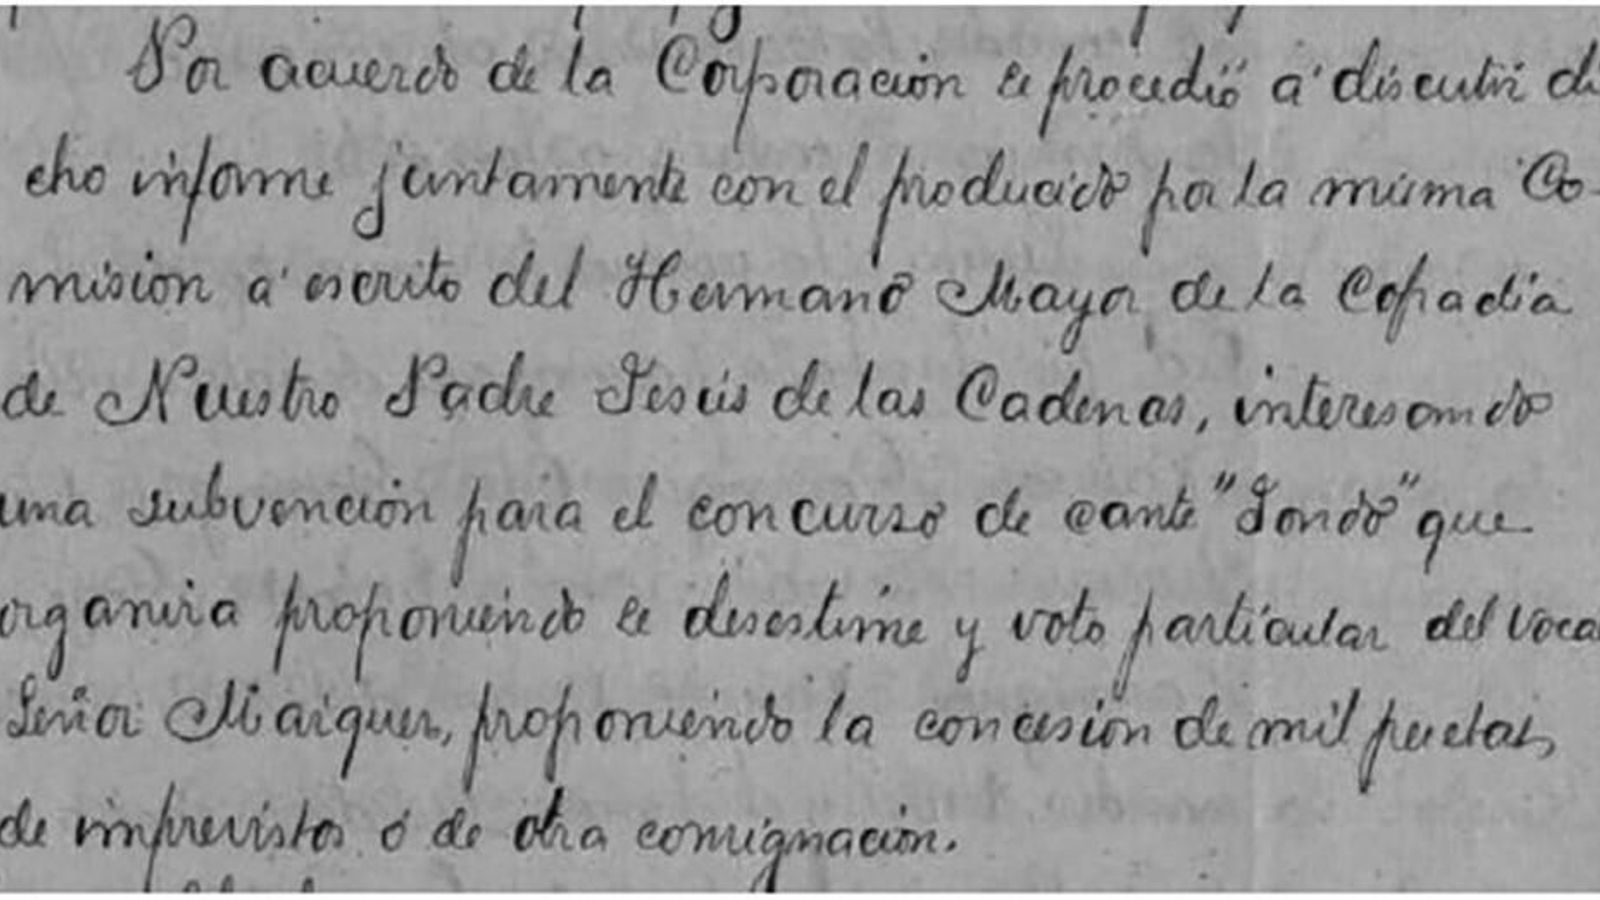 Por acuerdo de la Corporación se procedió á discutir di
cho informe juntamente con el producido por la misma Co-
misión á escrito del Hermano Mayor de la Cofradía
de Nuestro Padre Jesús de las Cadenas, interesando
una subvención para el concurso de cante "Jondo" que
organiza proponiendo se desestime y voto particular del Vocal
Señor Maiquez, proponiendo la concesión de mil pesetas,
de imprevistos ó de otra consignación.